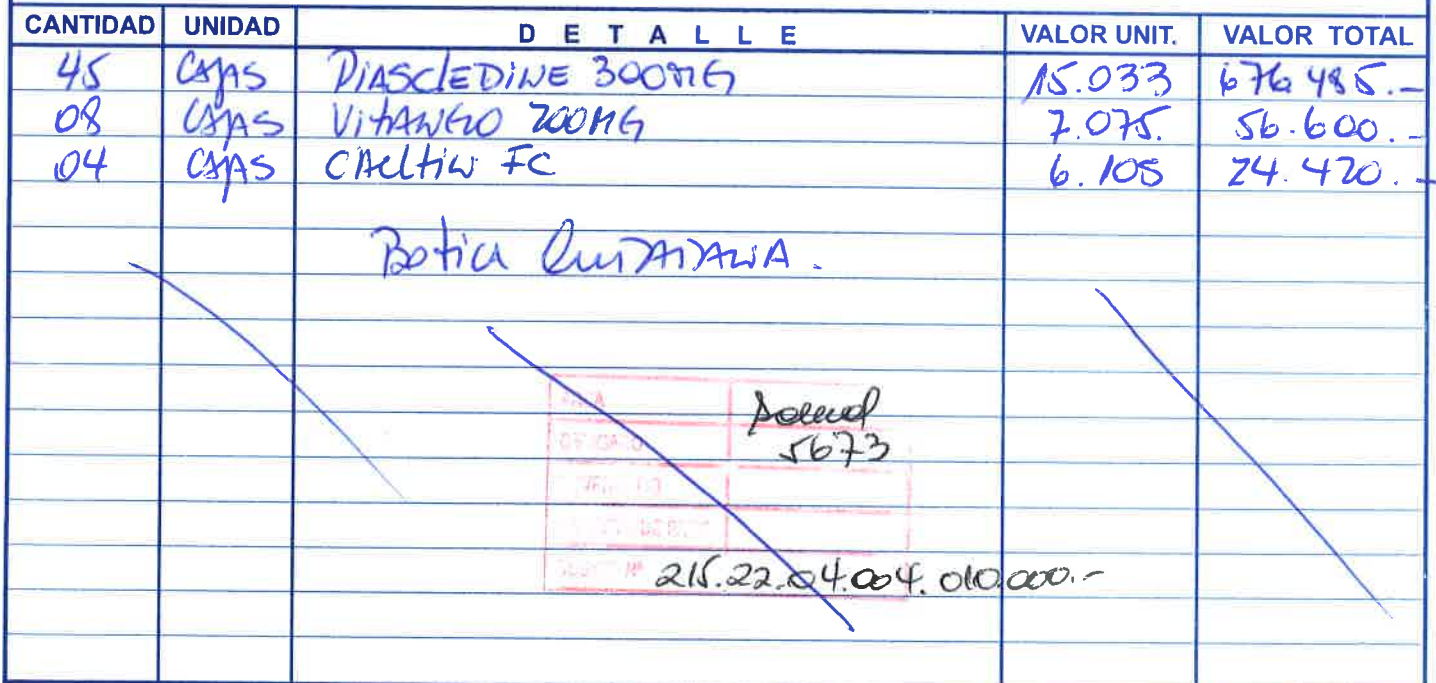 CANTIDAD UNIDAD DETALLE VALOR UNIT. VALOR TOTAL
45 CAJAS PIASCLEDINE 300MG 15.033 676.485.-
08 CAJAS VITANGO 200MG 7.075. 56.600.-
04 CAJAS 6.105 24.420.-
Botica
5673
215.22.04.004.010.000.-